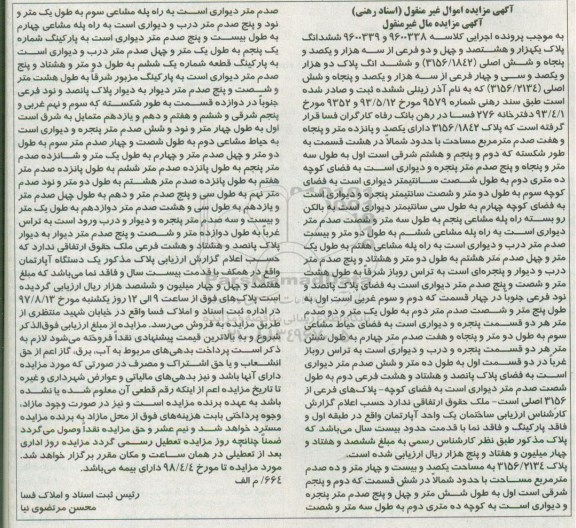 آگهی مزایده اموال غیر منقول (اسناد رهنی)
آگهی مزایده مال غیرمنقول
به موجب پرونده اجرایی کلاسه ۹۶۰۰۳۳۸ و ۹۶۰۰۳۳۹ ششدانگ
پلاک یکهزار و هشتصد و چهل و دو فرعی از سه هزار و یکصد و
پنجاه و شش اصلی (۳۱۵۶/۱۸۴۲) و ششد انگ پلاک دو هزار
و یکصد و سی و چهار فرعی از سه هزار و یکصد و پنجاه و شش
اصلی (۳۱۵۶/۲۱۳۴) که به نام آذر زینلی ششده ثبت و صادر شده
است طبق سند رهنی شماره ۹۵۷۹ مورخ ۹۳/۵/۱۲ و ۹۳۵۲ مورخ
۹۳/۴/۱ دفترخانه ۲۷۶ فسا در رهن بانک رفاه کارگران فسا قرار
گرفته است که پلاک ۳۱۵۶/۱۸۴۲ دارای یکصد و پانزده متر و پنجاه
و هفت صدم مترمربع مساحت با حدود شمالاً در هشت قسمت به
طور شکسته که دوم و پنجم و هشتم شرقی است اول به طول سه
متر و پنجاه و پنج صدم متر پنجره و دیواری است به فضای کوچه
ده متری دوم به طول شصت سانتیمتر دیواری است به فضای
کوچه سوم به طول دو متر و شصت سانتیمتر پنجره و دیواری است
به فضای کوچه چهارم به طول سی سانتیمتر دیواری است به بالکن
رو بسته راه پله مشاعی پنجم به طول سه متر و شصت صدم متر
دیواری است به راه پله مشاعی ششم به طول دو متر و بیست
صدم متر درب و دیواری است به راه پله مشاعی هفتم به طول یک
متر و چهل صدم متر هشتم به طول دو متر و هشتاد و پنج صدم متر
درب و دیوار و پنجره‌ای است به تراس روباز شرقاً به طول هشت
متر و شصت و پنج صدم متر دیواری است به فضای پلاک پانصد و
نود فرعی جنوبا در چهار قسمت که دوم و سوم غربی است اول به
طول پنج متر و شصت صدم متر دوم به طول یک متر و دو صدم
متر هر دو قسمت پنجره و دیواری است به فضای حیاط مشاعی
سوم به طول دو متر و پنجاه و هفت صدم متر چهارم به طول شش
متر هر دو قسمت پنجره و درب و دیواری است به تراس روباز
غرباً در دو قسمت اول به طول ده متر و شش صدم متر دیواری
است به فضای پلاک پانصد و هشتاد و هشت فرعی دوم به طول
شصت صدم متر دیواری است به فضای کوچه- پلاک‌های فرعی از
۳۱۵۶ اصلی است- ملک حقوق ارتفاقی ندارد حسب اعلام گزارش
کارشناس ارزیابی ساختمان یک واحد آپارتمان واقع در طبقه اول و
فاقد پارکینگ و فاقد نما با قدمت حدود بیست سال می‌باشد که
پلاک مذکور طبق نظر کارشناس رسمی به مبلغ ششصد و هفتاد و
چهار میلیون و هفتاد و پنج هزار ریال ارزیابی شده است.
پلاک ۳۱۵۶/۲۱۳۴ به مساحت یکصد و بیست و چهار متر و ده صدم
مترمربع مساحت با حدود شمالاً در شش قسمت که دوم و پنجم
شرقی است اول به طول شش متر و چهل و پنج صدم متر پنجره
و دیواری است به کوچه ده متری دوم به طول سه متر و شصت
صدم متر دیواری است به راه پله مشاعی سوم به طول یک متر و
نود و پنج صدم متر درب و دیواری است به راه پله مشاعی چهارم
به طول بیست و پنج صدم متر دیواری است به پارکینگ شماره
یک پنجم به طول یک متر و چهل صدم متر درب و دیواری است
به پارکینگ قطعه شماره یک ششم به طول دو متر و هشتاد و پنج
صدم متر دیواری است به پارکینگ مزبور شرقاً به طول هشت متر
و شصت و پنج صدم متر دیوار به دیوار پلاک پانصد و نود فرعی
جنوباً در دوازده قسمت به طور شکسته که سوم و نهم غربی و
پنجم شرقی و ششم و هفتم و دهم و یازدهم متمایل به شرق است
اول به طول چهار متر و نود و شش صدم متر پنجره و دیواری است
به حیاط مشاعی دوم به طول شصت و چهار صدم متر سوم به طول
دو متر و چهل صدم متر و چهارم به طول یک متر و شانزده صدم
متر پنجم به طول پانزده صدم متر ششم به طول پانزده صدم متر
هفتم به طول پانزده صدم متر هشتم به طول دو متر و نود صدم
متر نهم به طول سی و پنج صدم متر و دهم به طول چهل صدم متر
و یازدهم به طول سی و هشت صدم متر دوازدهم به طول یک متر
و بیست و سه صدم متر پنجره و دیوار و درب ورود است به تراس
غرباً به طول دوازده متر و شصت و پنج صدم متر دیوار به دیوار
پلاک پانصد و هشتاد و هشت فرعی ملک حقوق ارتفاقی ندارد که
حسب اعلام گزارش ارزیابی پلاک مذکور یک دستگاه آپارتمان
واقع در همکف با قدمت بیست سال و فاقد نما می‌باشد که مبلغ
هفتصد و چهل و چهار میلیون و ششصد هزار ریال ارزیابی گردیده
است پلاک‌های فوق از ساعت ۹ الی ۱۲ روز یکشنبه مورخ ۹۷/۸/۱۳
در اداره ثبت اسناد و املاک فسا واقع در خیابان شهید منتظری از
طریق مزایده به فروش می‌رسد. مزایده از مبلغ ارزیابی فوق‌الذکر
شروع و به بالاترین قیمت پیشنهادی نقداً فروخته می‌شود لازم به
ذکر است پرداخت بدهی‌های مربوط به آب، برق، گاز اعم از حق
انشعاب و یا حق اشتراک و مصرف در صورتی که مورد مزایده
دارای آنها باشد و نیز بدهی‌های مالیاتی و عوارض شهرداری و غیره
تا تاریخ مزایده اعم از اینکه رقم قطعی آن معلوم شده یا نشده
باشد به عهده برنده مزایده است و نیز در صورت وجود مازاد،
وجوه پرداختی بابت هزینه‌های فوق از محل مازاد به برنده مزایده
مسترد خواهد شد و نیم عشر و حق مزایده نقداً وصول می‌گردد
ضمناً چنانچه روز مزایده تعطیل رسمی گردد مزایده روز اداری
بعد از تعطیلی در همان ساعت و مکان مقرر برگزار خواهد شد.
مورد مزایده تا مورخ ۹۸/۴/۴ دارای بیمه می‌باشد.
۶۶۴/ م الف
رئیس ثبت اسناد و املاک فسا
محسن مرتضوی نیا